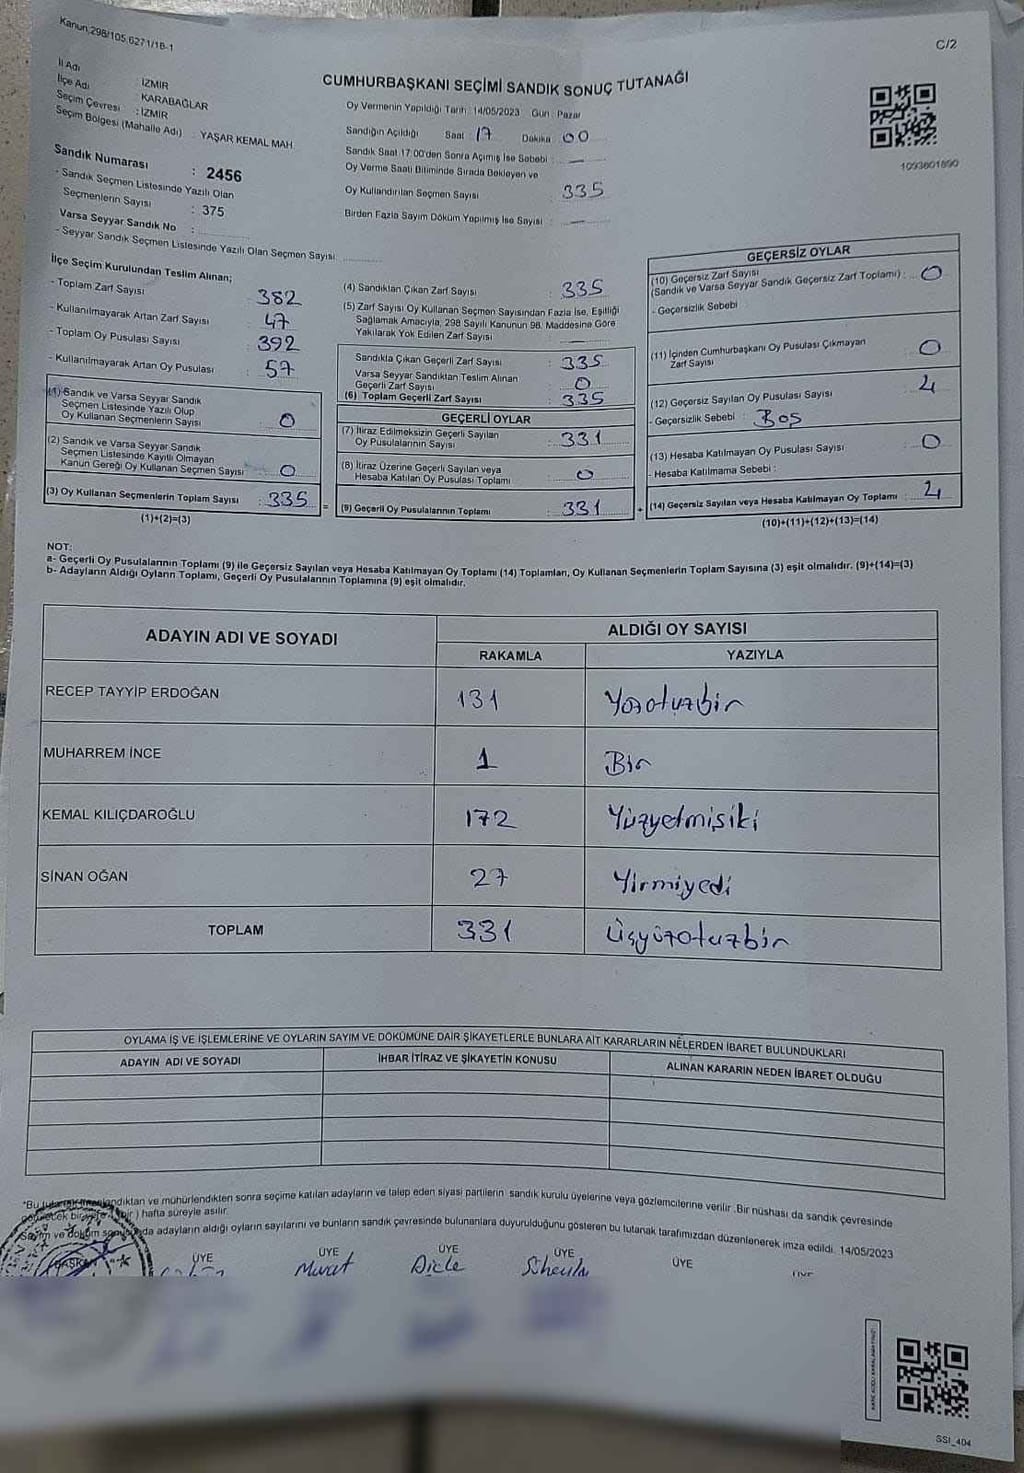 Kanun:298/105,6271/18-1
C/2
CUMHURBAŞKANI SEÇİMİ SANDIK SONUÇ TUTANAĞI
İl Adı : İZMİR
İlçe Adı : KARABAĞLAR
Seçim Çevresi : İZMİR
Seçim Bölgesi (Mahalle Adı) : YAŞAR KEMAL MAH.
Sandık Numarası : 2456
- Sandık Seçmen Listesinde Yazılı Olan
Seçmenlerin Sayısı : 375
Varsa Seyyar Sandık No :
- Seyyar Sandık Seçmen Listesinde Yazılı Olan Seçmen Sayısı:
Oy Vermenin Yapıldığı Tarih : 14/05/2023 Gün : Pazar
Sandığın Açıldığı Saat : 17 Dakika : 00
Sandık Saat 17:00'den Sonra Açımış İse Sebebi : —
Oy Verme Saati Bitiminde Sırada Bekleyen ve
Oy Kullandırılan Seçmen Sayısı : 335
Birden Fazla Sayım Döküm Yapılmış İse Sayısı : —
1093801890
İlçe Seçim Kurulundan Teslim Alınan;
- Toplam Zarf Sayısı : 382
- Kullanılmayarak Artan Zarf Sayısı : 47
- Toplam Oy Pusulası Sayısı : 392
- Kullanılmayarak Artan Oy Pusulası : 57
(1) Sandık ve Varsa Seyyar Sandık
Seçmen Listesinde Yazılı Olup
Oy Kullanan Seçmenlerin Sayısı : 0
(2) Sandık ve Varsa Seyyar Sandık
Seçmen Listesinde Kayıtlı Olmayan
Kanun Gereği Oy Kullanan Seçmen Sayısı : 0
(3) Oy Kullanan Seçmenlerin Toplam Sayısı : 335
(1)+(2)=(3)
(4) Sandıktan Çıkan Zarf Sayısı : 335
(5) Zarf Sayısı Oy Kullanan Seçmen Sayısından Fazla İse, Eşitliği
Sağlamak Amacıyla, 298 Sayılı Kanunun 98. Maddesine Göre
Yakılarak Yok Edilen Zarf Sayısı : —
Sandıkla Çıkan Geçerli Zarf Sayısı : 335
Varsa Seyyar Sandıktan Teslim Alınan
Geçerli Zarf Sayısı : 0
(6) Toplam Geçerli Zarf Sayısı : 335
GEÇERLİ OYLAR
(7) İtiraz Edilmeksizin Geçerli Sayılan
Oy Pusulalarının Sayısı : 331
(8) İtiraz Üzerine Geçerli Sayılan veya
Hesaba Katılan Oy Pusulası Toplamı : 0
(9) Geçerli Oy Pusulalarının Toplamı : 331
GEÇERSİZ OYLAR
(10) Geçersiz Zarf Sayısı
(Sandık ve Varsa Seyyar Sandık Geçersiz Zarf Toplamı) : 0
- Geçersizlik Sebebi :
(11) İçinden Cumhurbaşkanı Oy Pusulası Çıkmayan
Zarf Sayısı : 0
(12) Geçersiz Sayılan Oy Pusulası Sayısı : 4
- Geçersizlik Sebebi : Boş
(13) Hesaba Katılmayan Oy Pusulası Sayısı : 0
- Hesaba Katılmama Sebebi :
(14) Geçersiz Sayılan veya Hesaba Katılmayan Oy Toplamı : 4
(10)+(11)+(12)+(13)=(14)
NOT:
a- Geçerli Oy Pusulalarının Toplamı (9) ile Geçersiz Sayılan veya Hesaba Katılmayan Oy Toplamı (14) Toplamları, Oy Kullanan Seçmenlerin Toplam Sayısına (3) eşit olmalıdır. (9)+(14)=(3)
b- Adayların Aldığı Oyların Toplamı, Geçerli Oy Pusulalarının Toplamına (9) eşit olmalıdır.
ADAYIN ADI VE SOYADI ALDIĞI OY SAYISI
RAKAMLA YAZIYLA
RECEP TAYYİP ERDOĞAN 131 Yüzotuzbir
MUHARREM İNCE 1 Bir
KEMAL KILIÇDAROĞLU 172 Yüzyetmişiki
SİNAN OĞAN 27 Yirmiyedi
TOPLAM 331 Üçyüzotuzbir
OYLAMA İŞ VE İŞLEMLERİNE VE OYLARIN SAYIM VE DÖKÜMÜNE DAİR ŞİKAYETLERLE BUNLARA AİT KARARLARIN NELERDEN İBARET BULUNDUKLARI
ADAYIN ADI VE SOYADI İHBAR İTİRAZ VE ŞİKAYETİN KONUSU ALINAN KARARIN NEDEN İBARET OLDUĞU
ve mühürlendikten sonra seçime katılan adayların ve talep eden siyasi partilerin sandık kurulu üyelerine veya gözlemcilerine verilir .Bir nüshası da sandık çevresinde
hafta süreyle asılır.
Sayım ve döküm adayların aldığı oyların sayılarını ve bunların sandık çevresinde bulunanlara duyurulduğunu gösteren bu tutanak tarafımızdan düzenlenerek imza edildi. 14/05/2023
BAŞKAN ÜYE ÜYE ÜYE ÜYE ÜYE ÜYE
Murat Dicle
SSI_404